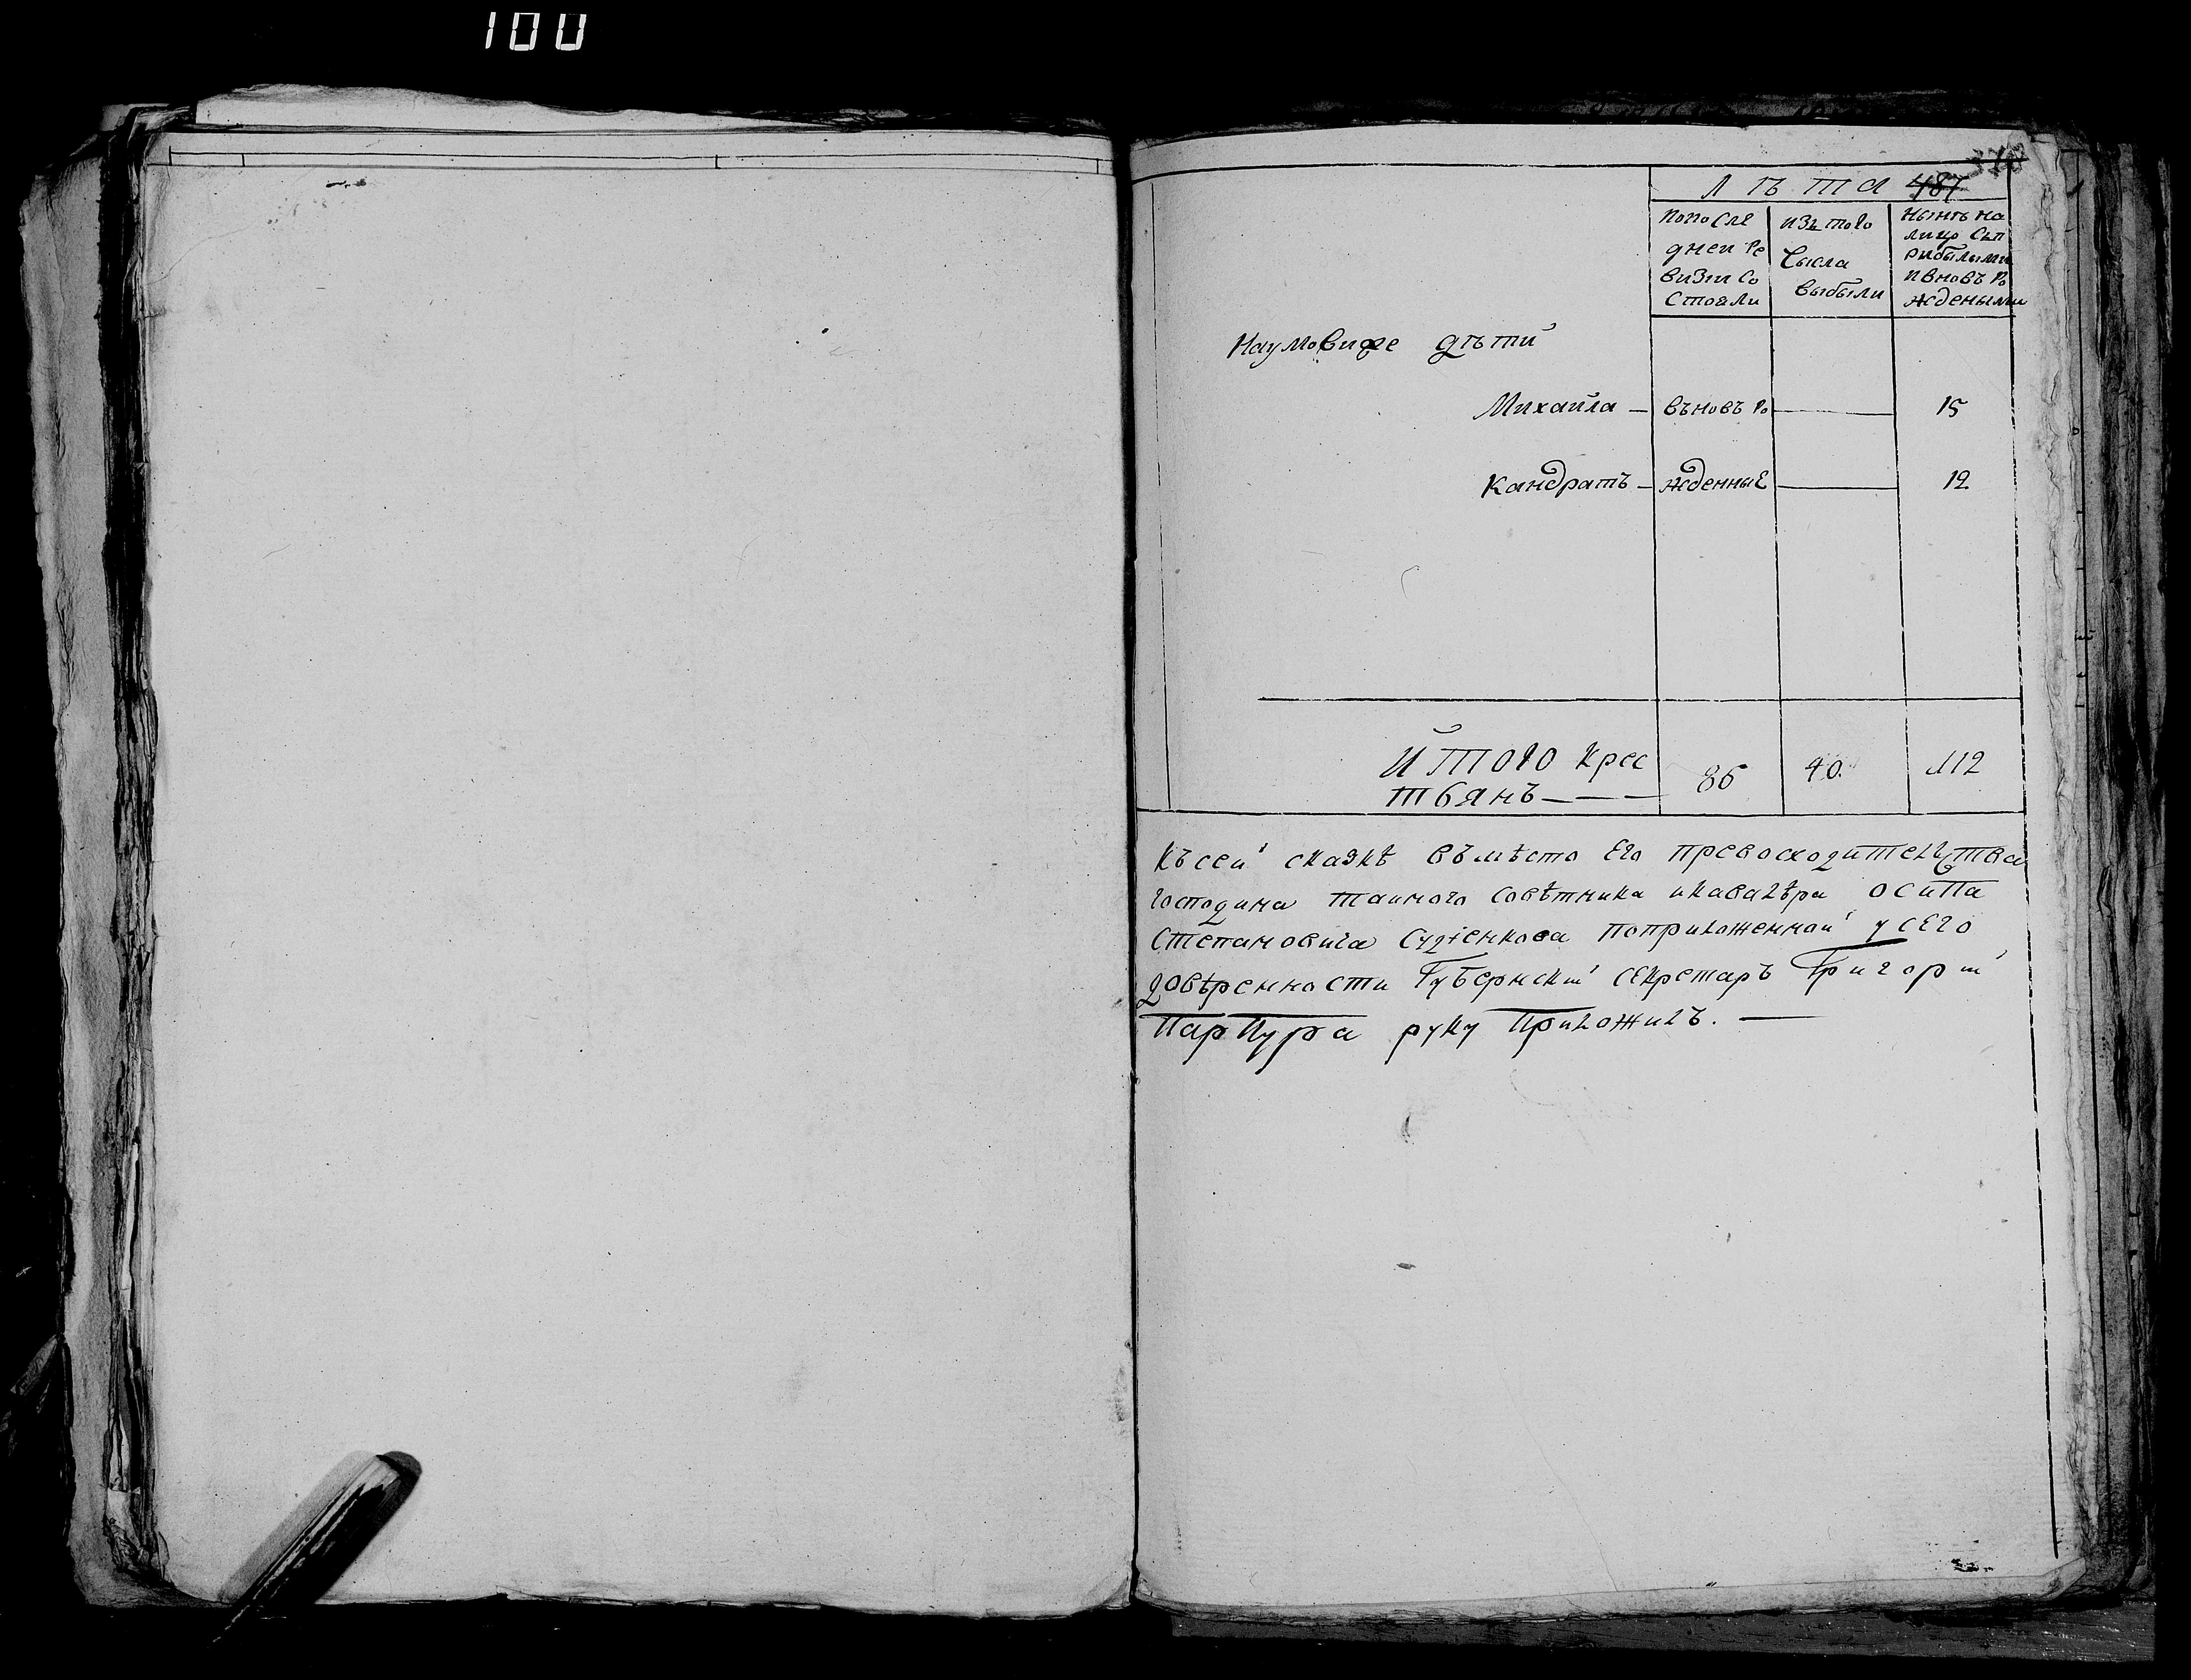 100
Лѣта 487
попосле
дней ре
визи со
стояли
изъ того
числа
выбыли
нынѣ на
лицо съп
рибылыми
ивновъ ро
ждеными
Наумовиже дѣти
Михайла — въновъ ро — 15
Кандратъ — жденные — 12
Итого крес
тьянъ — — — 86 40. 112
Късей сказкѣ въмѣсто Его превосходительства
господина таиного совѣтника икавалѣра осипа
степановича судіенкова поприложенной у сего
довѣренности губернский секретаръ григорий
парпура руку приложилъ. —